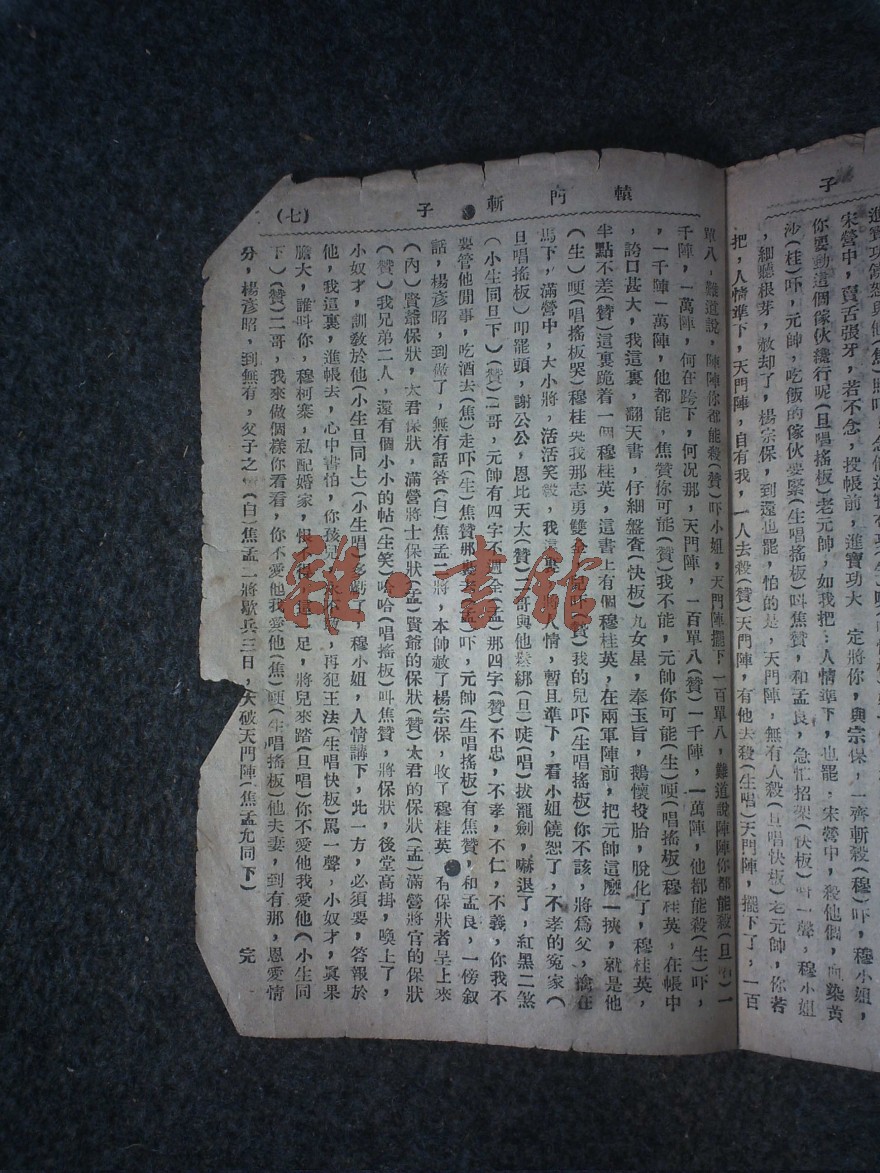 子
宋營中，賣舌張牙，若不念，投帳前，進寶功大　定將你，與宗保，一齊斬殺(穆)吓，穆小姐，
你要動這個傢伙纔行呢(旦唱搖板)老元帥，如我把；人情準下，也罷；宋營中，殺他個，血染黃
沙(桂)吓，元帥，吃飯的傢伙要緊(生唱搖板)叫焦贊，和孟良，急忙招架(快板)一聲，穆小姐
，細聽根芽，赦却了，楊宗保，到還也罷，怕的是，天門陣，無有人殺(旦唱快板)老元帥，你若
把，人情準下，天門陣，自有我，一人去殺(贊)天門陣，有他去殺(生唱)天門陣，擺下了，一百
轅門斬子
(七)
單八，難道說，陣陣你都能殺(贊)吓小姐，天門陣擺下一百單八，難道說陣陣你都能殺(旦唱)一
千陣，一萬陣，何在跨下，何况那，天門陣，一百單八(贊)一千陣，一萬陣，他都能殺(生)吓，
，一千陣一萬陣，他都能，焦贊你可能(贊)我不能，元帥你可能(生)哽(唱搖板)穆桂英，在帳中
，誇口甚大，我這裏，翻天書，仔細盤查(快板)九女星，奉玉旨，鵝懷投胎，脫化了，穆桂英，
半點不差(贊)這裏跪着一個穆桂英，這書上有個穆桂英，在兩軍陣前，把元帥這麼一挾，就是他
(生)哽(唱搖板哭)穆桂英我那志勇雙全兒吓(贊)我的兒吓(生唱搖板)你不該，將爲父，擒在
馬下，滿營中，大小將，活活笑殺，我這裏將人情，暫且準下，看小姐饒恕了，不孝的冤家(
旦唱搖板)叩罷頭，謝公公，恩比天大(贊)二哥與他鬆綁(旦)唗(唱)拔寵劍，嚇退了，紅黑二煞
(小生同旦下)(贊)二哥，元帥有四字不週全(孟)那四字(贊)不忠，不孝，不仁，不義，你我不
要管他閒事，吃酒去(焦)走吓(生)焦贊那裏去(孟)吓，元帥(生唱搖板)有焦贊，和孟良，一傍叙
話，楊彥昭，到做了，無有話答(白)焦孟二將，本帥赦了楊宗保，收了穆桂英　有保狀者呈上來
(內)賢爺保狀，太君保狀，滿營將士保狀(孟)賢爺的保狀(贊)太君的保狀(孟)滿營將官的保狀
(贊)我兄弟二人，還有個小小的帖(生笑)哈哈(唱搖板)叫焦贊，將保狀，後堂高掛，喚上了，
小奴才，訓敎於他(小生旦同上)(小生唱)多虧了，穆小姐，人情講下，此一方，必須要，答報於
他，我這裏，進帳去，心中害怕，你孩兒，再犯王法(生唱快板)罵一聲，小奴才，真果
膽大，誰叫你，穆柯寨，私配婚家，恨不得足，將兒來踏(旦唱)你不愛他我愛他(小生同
下)(贊)二哥，我來做個樣你看看，你不愛他我愛他(焦)哽(生唱搖板)他夫妻，到有那，恩愛情
分，楊彥昭，到無有，父子之情(白)焦孟二將歇兵三日，大破天門陣(焦孟允同下)　完
雜·書館